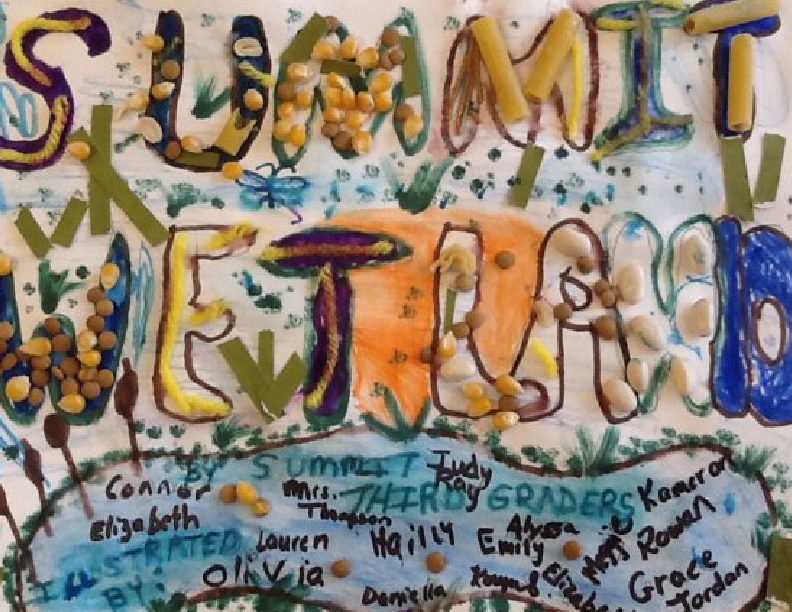 SUMMIT
WETLAND
BY SUMMIT
THIRD GRADERS
ILLUSTRATED
BY:
Connor
Mrs.
Thompson
Judy
Ray
Kameron
Elizabeth
Lauren
Hailly
Alyssa
Emily
Rowan
Olivia
Daniella
Grace
Jordan